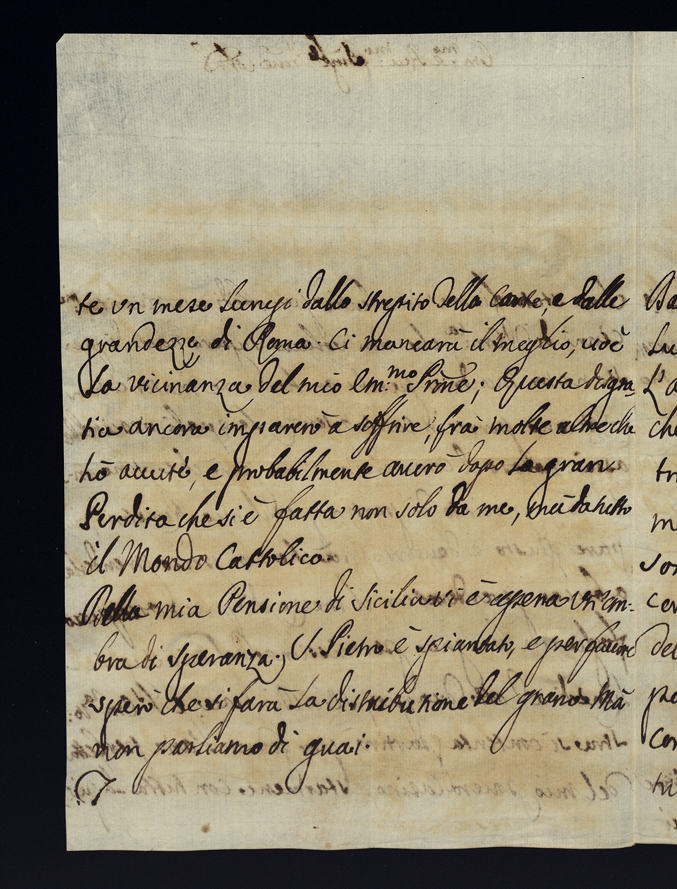 te un mese lungi dallo strepito della Corte, e dalle
grandezze di Roma. Ci mancarà il meglio, cioè
la vicinanza del mio Em.mo Pnñe; Questa disgra
tia ancora impararò a soffrire, frà molte altre che
hò avute, e probabilmente averò dopo la gran
Perdita che si è fatta non solo da me, mà da tutto
il Mondo Cattolico
Della mia Pensione di Sicilia vi è apena un'om-
bra di speranza. S. Pietro è spiantato, e per
sperò che si farà la distributione del grano Mà
non parliamo di guai.
Ba
Lu
L'a
che
tr
m
son
cer
del
pe
Con